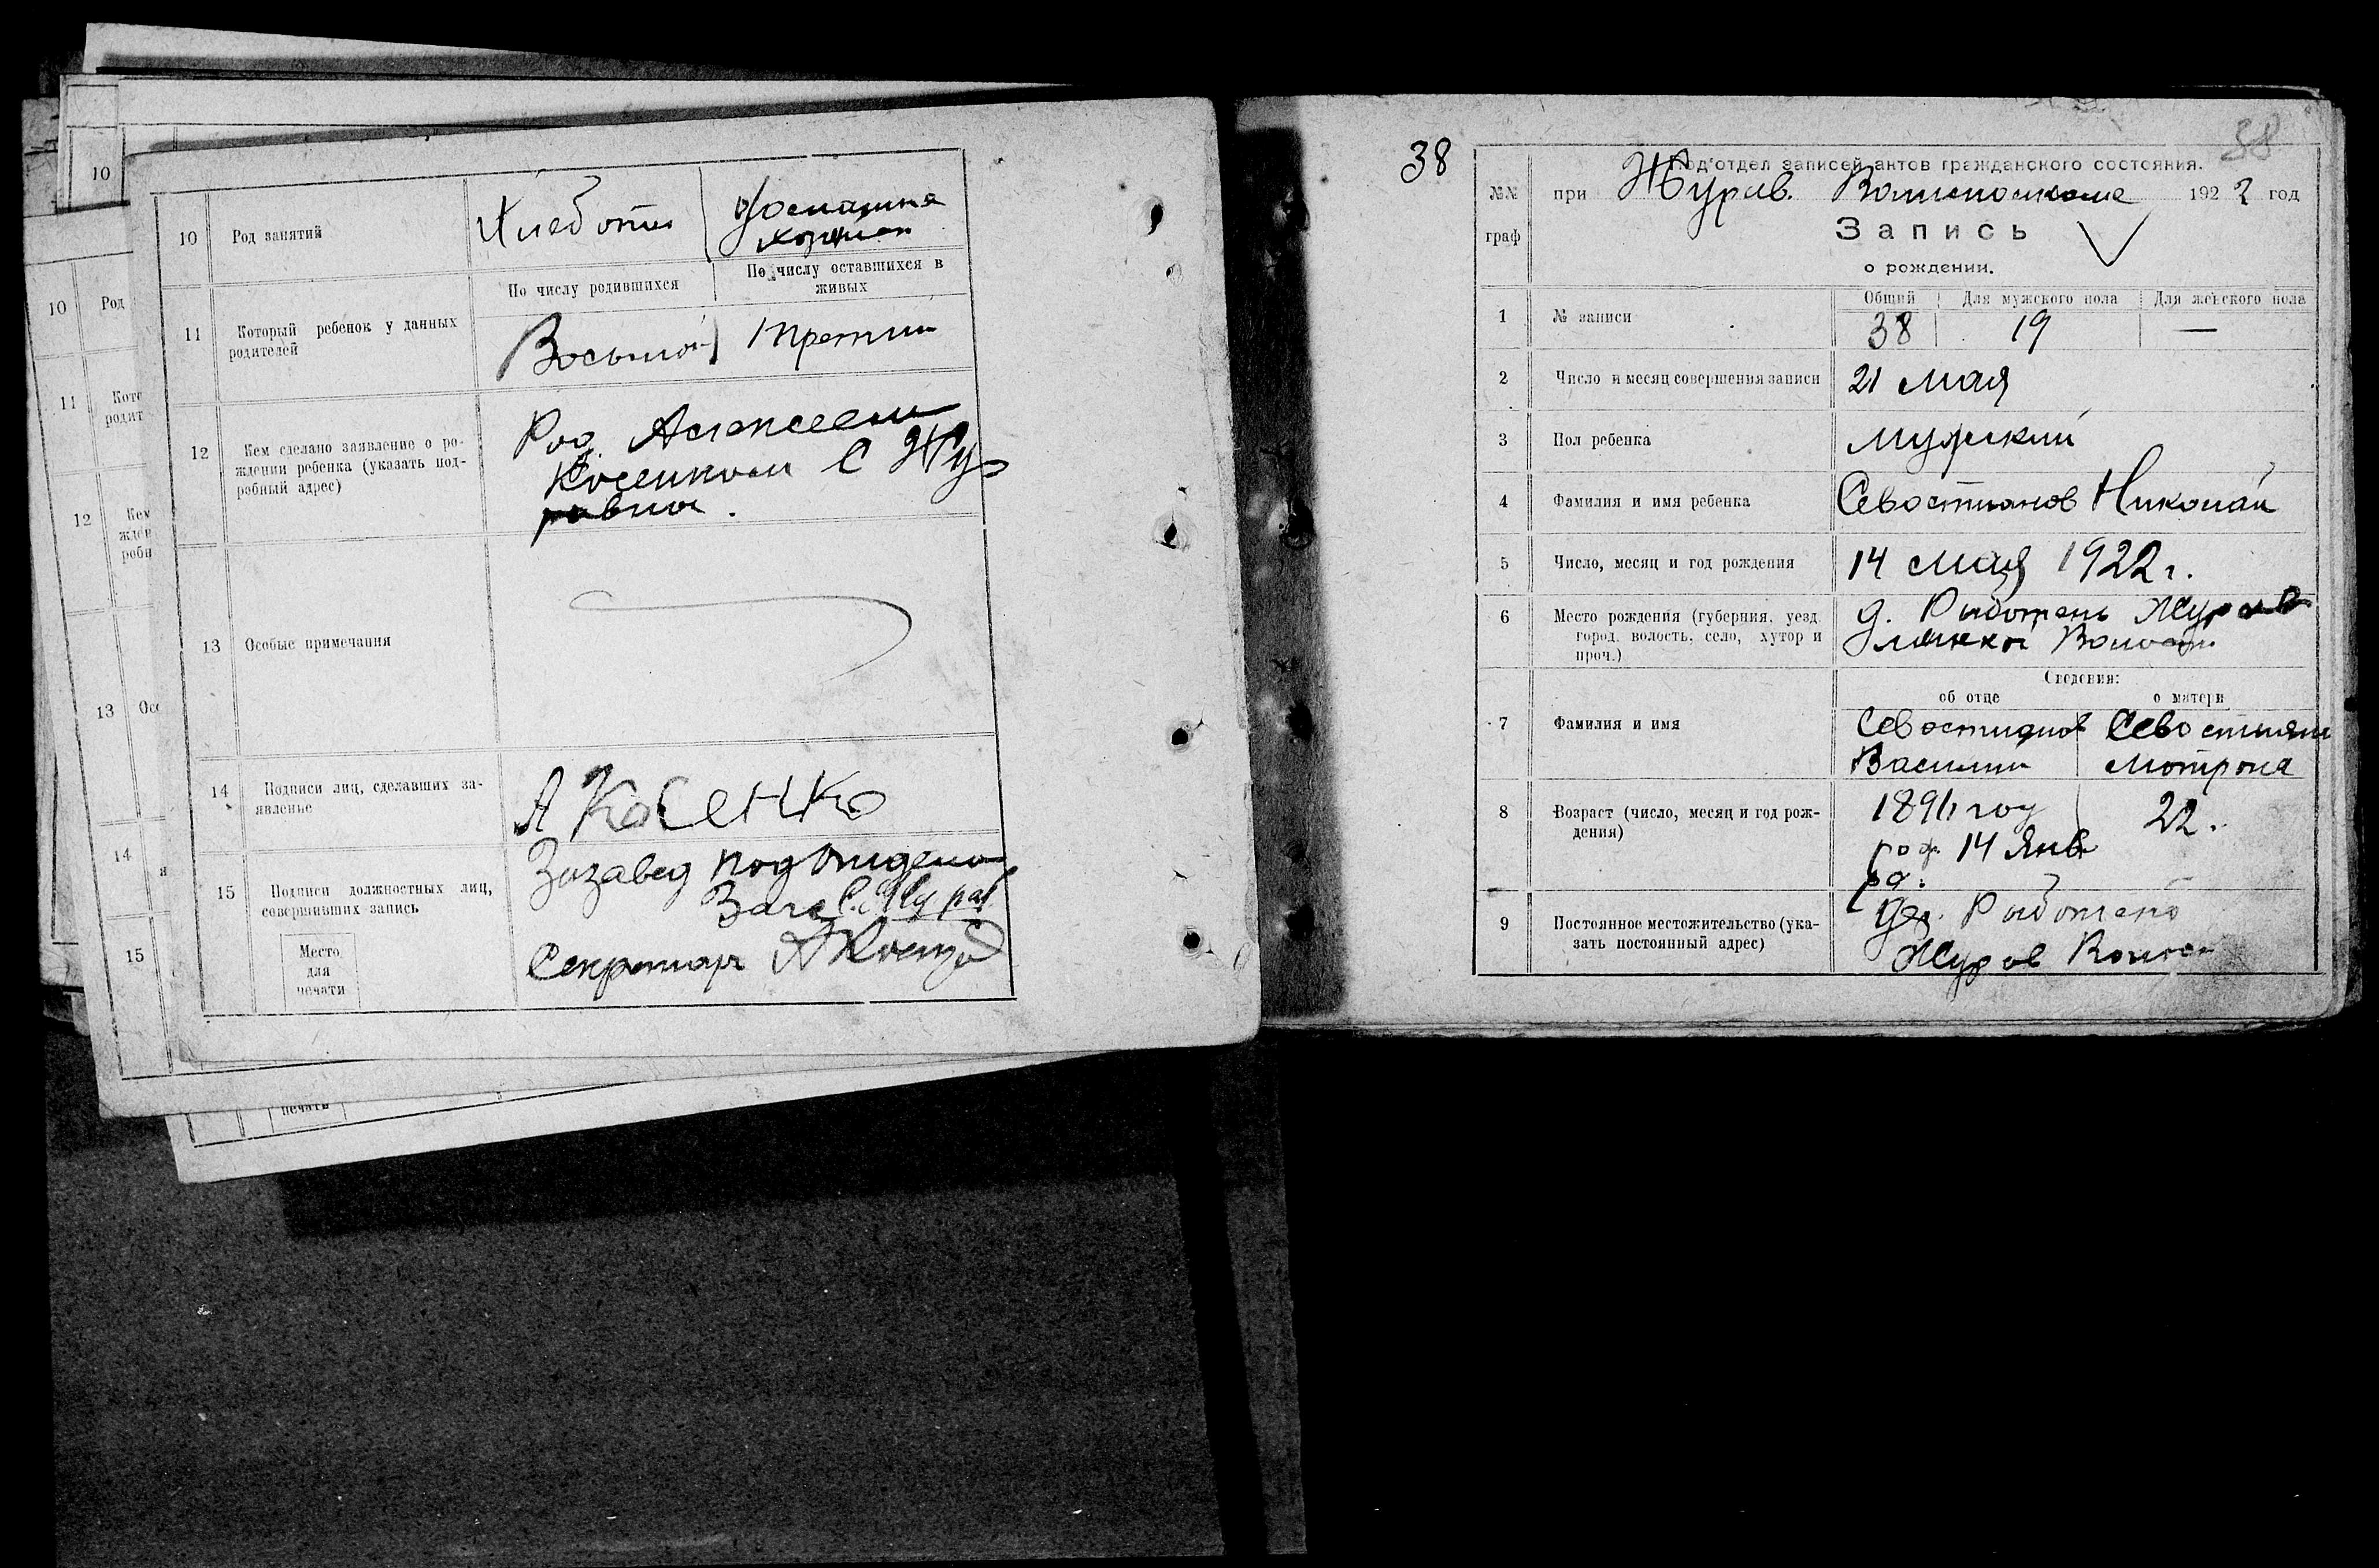 10
10
Род
11
12
13
14
15
10
Род занятий
Хлебопаш
Домашняя
11
Который ребенок у данных
родителей
По числу родившихся
По числу оставшихся в
живых
Восьмой
Третий
12
Кем сделано заявление о ро-
ждении ребенка (указать под-
робный адрес)
Род. Алексеем
Косенком С Жу
равно.
13
Особые примечания
14
Подписи лиц, сделавших за-
явленье
А Косенко
15
Подписи должностных лиц,
совершивших запись
Место
для
печати
Зазавед подотделом
Загс С. Журав
Секретарь
печати
38
38
Под'отдел записей актов гражданского состояния.
№№
граф
при Журав. Волисполкоме 1922 год
Запись
о рождении.
1
№ записи
Общий
Для мужского пола
Для женского пола
38
19
—
2
Число и месяц совершения записи
21 мая
3
Пол ребенка
мужский
4
Фамилия и имя ребенка
Севостианов Николай
5
Число, месяц и год рождения
14 мая 1922 г.
6
Место рождения (губерния, уезд
город, волость, село, хутор и
проч.)
д. Рыботень Журав
линкой Волости
Сведения:
об отце
о матери
7
Фамилия и имя
Севостианов
Василий
Севостиян
Мотрона
8
Возраст (число, месяц и год рож-
дения)
год
род. 14 Янв
ра.
22.
9
Постоянное местожительство (ука-
зать постоянный адрес)
Дер. Рыботень
Журав Волос